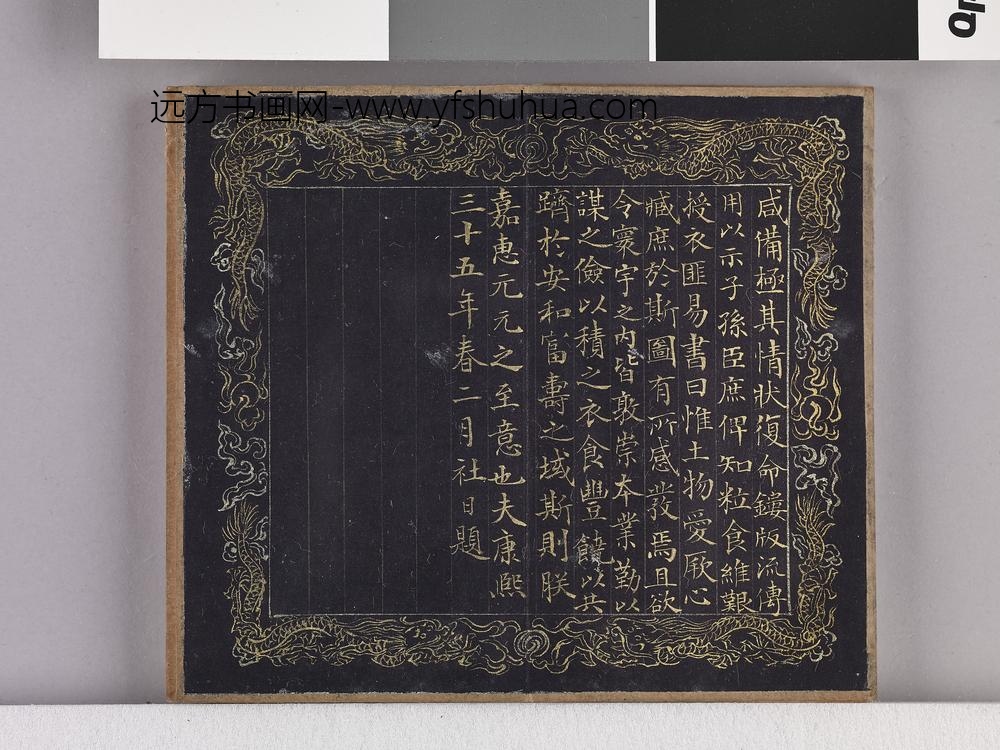 远方书画网-www.yfshuhua.com
咸備極其情狀復命鏤版流傳
用以示子孫臣庶俾知粒食維艱
授衣匪易書曰惟土物愛厥心
臧庶於斯圖有所感發焉且欲
令寰宇之內皆敦崇本業勤以
謀之儉以積之衣食豐饒以共
躋於安和富壽之域斯則朕
嘉惠元元之至意也夫康熙
三十五年春二月社日題